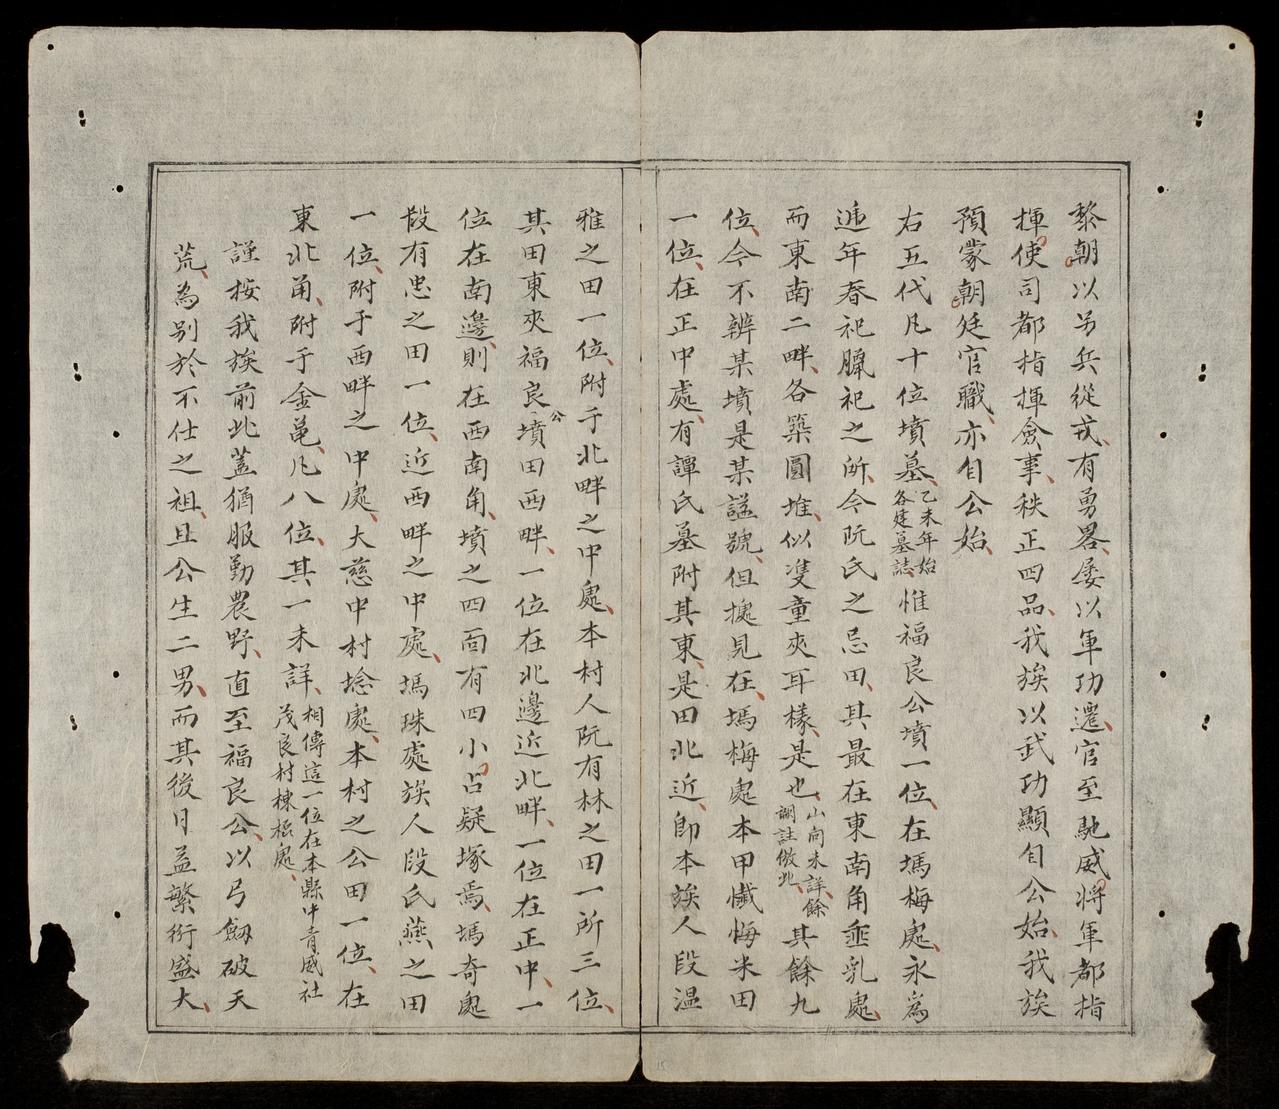 黎朝以弓兵從戎有勇畧屡以軍功遷官至馳威将軍都指
揮使司都指揮僉事秩正四品我族以武功顯自公始我族
預蒙朝廷官職亦自公始
右五代凡十位墳墓乙未年始各建墓誌惟福良公墳一位在塢梅處永為
逓年春祀臘祀之所今阮氏之忌田其最在東南角垂乳處
而東南二畔各築圓堆似𨾏童夾耳様是也山向未詳餘謝註倣此其餘九
位今不辨某墳是某諡號但摠見在塢梅處本甲懴悔米田
一位在正中處有譚氏墓附其東是田北近卽本族人段温
雅之田一位附于北畔之中處本村人阮有林之田一所三位
其田東夾福良公墳田西畔一位在北邊近北畔一位在正中一
位在南邊則在西南角墳之四面有四小占疑塚焉塢奇處
段有忠之田一位近西畔之中處塢珠處族人段氏燕之田
一位附于西畔之中處大慈中村埝處本村之公田一位在
東北甬附于金黾凡八位其一未詳相傳這一位在本縣中青威社茂良村棟柩處
謹按我族前此蓋猶服勤農野直至福良公以弓劔破天
荒為别於不仕之祖且公生二男而其後日益繁衍盛大